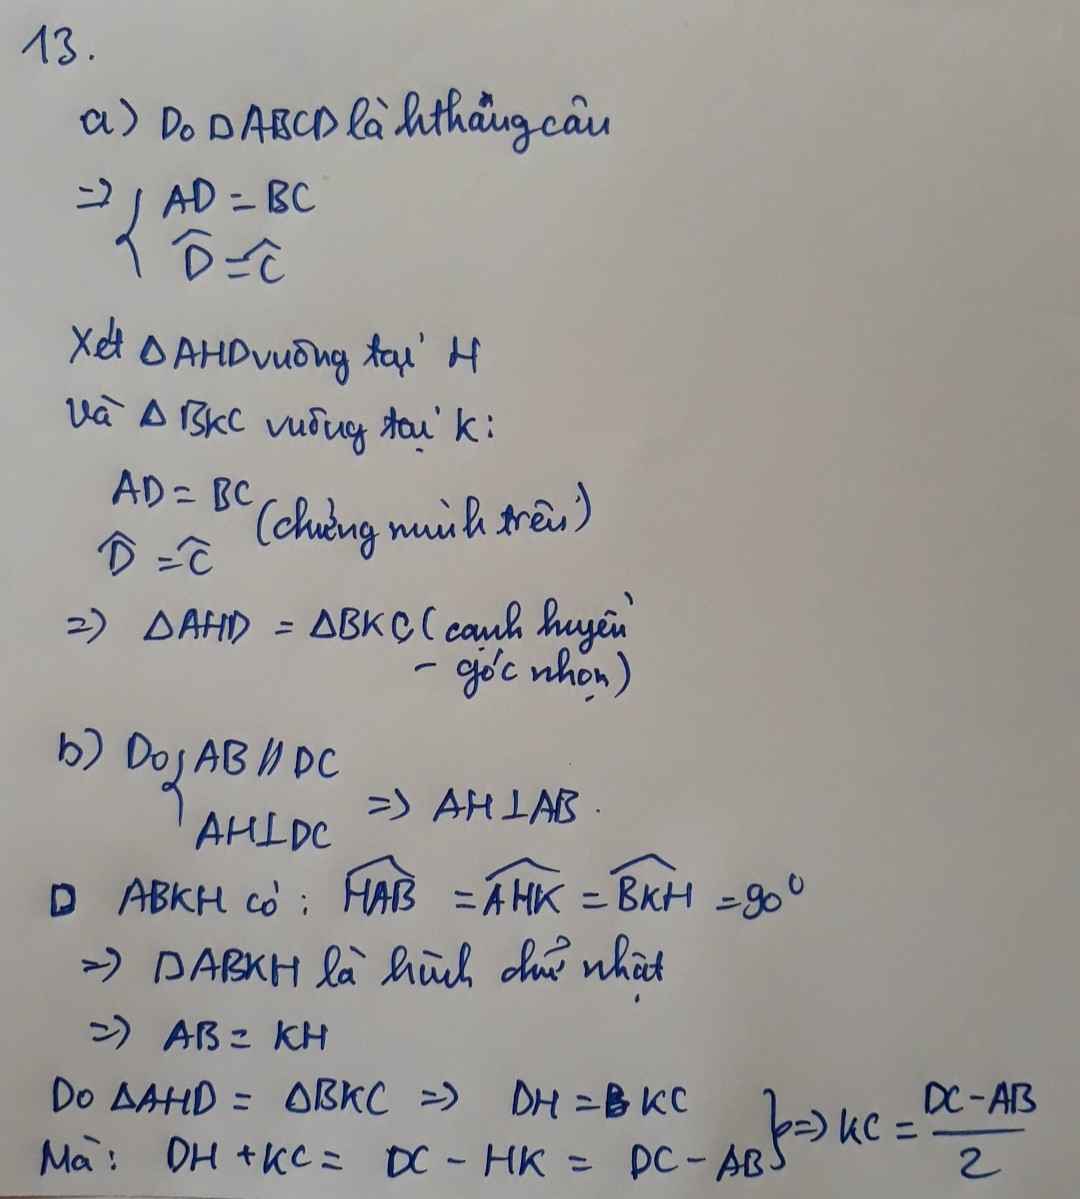 13.
a) Do □ ABCD là hthang cân
=> { AD = BC
D̂ = Ĉ
Xét △AHD vuông tại H
Và △ BKC vuông tại K:
AD = BC
(chứng minh trên)
D̂ = Ĉ
=> △AHD = △BKC (cạnh huyền
- góc nhọn)
b) Do { AB // DC
AH ⊥ DC => AH ⊥ AB.
□ ABKH có: HAB̂ = AHK̂ = BKĤ = 90⁰
=> □ABKH là hình chữ nhật
=> AB = KH
Do △AHD = △BKC => DH = KC
Mà: DH + KC = DC - HK = DC - AB } => KC = (DC - AB)/2